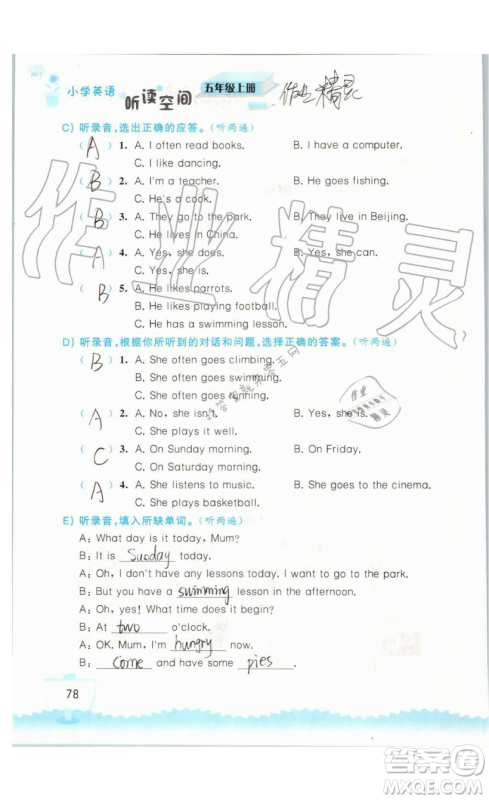 小学英语
听读空间
五年级上册
作业精灵
C) 听录音,选出正确的应答。(听两遍)
( A ) 1. A. I often read books. B. I have a computer.
C. I like dancing.
( B ) 2. A. I'm a teacher. B. He goes fishing.
C. He's a cook.
( B ) 3. A. They go to the park. B. They live in Beijing.
C. He lives in China.
( A ) 4. A. Yes, she does. B. Yes, she can.
C. Yes, she is.
( B ) 5. A. He likes parrots.
B. He likes playing football.
C. He has a swimming lesson.
D) 听录音,根据你所听到的对话和问题,选择正确的答案。(听两遍)
( B ) 1. A. She often goes climbing.
B. She often goes swimming.
C. She often goes running.
( A ) 2. A. No, she isn't. B. Yes, she is.
C. She plays it well.
( C ) 3. A. On Sunday morning. B. On Friday.
C. On Saturday morning.
( A ) 4. A. She listens to music. B. She goes to the cinema.
C. She plays basketball.
E) 听录音,填入所缺单词。(听两遍)
A: What day is it today, Mum?
B: It is Sunday today.
A: Oh, I don't have any lessons today. I want to go to the park.
B: But you have a swimming lesson in the afternoon.
A: Oh, yes! What time does it begin?
B: At two o'clock.
A: OK, Mum. I'm hungry now.
B: Come and have some pies.
78
作业精灵
答案圈
MXQE.COM